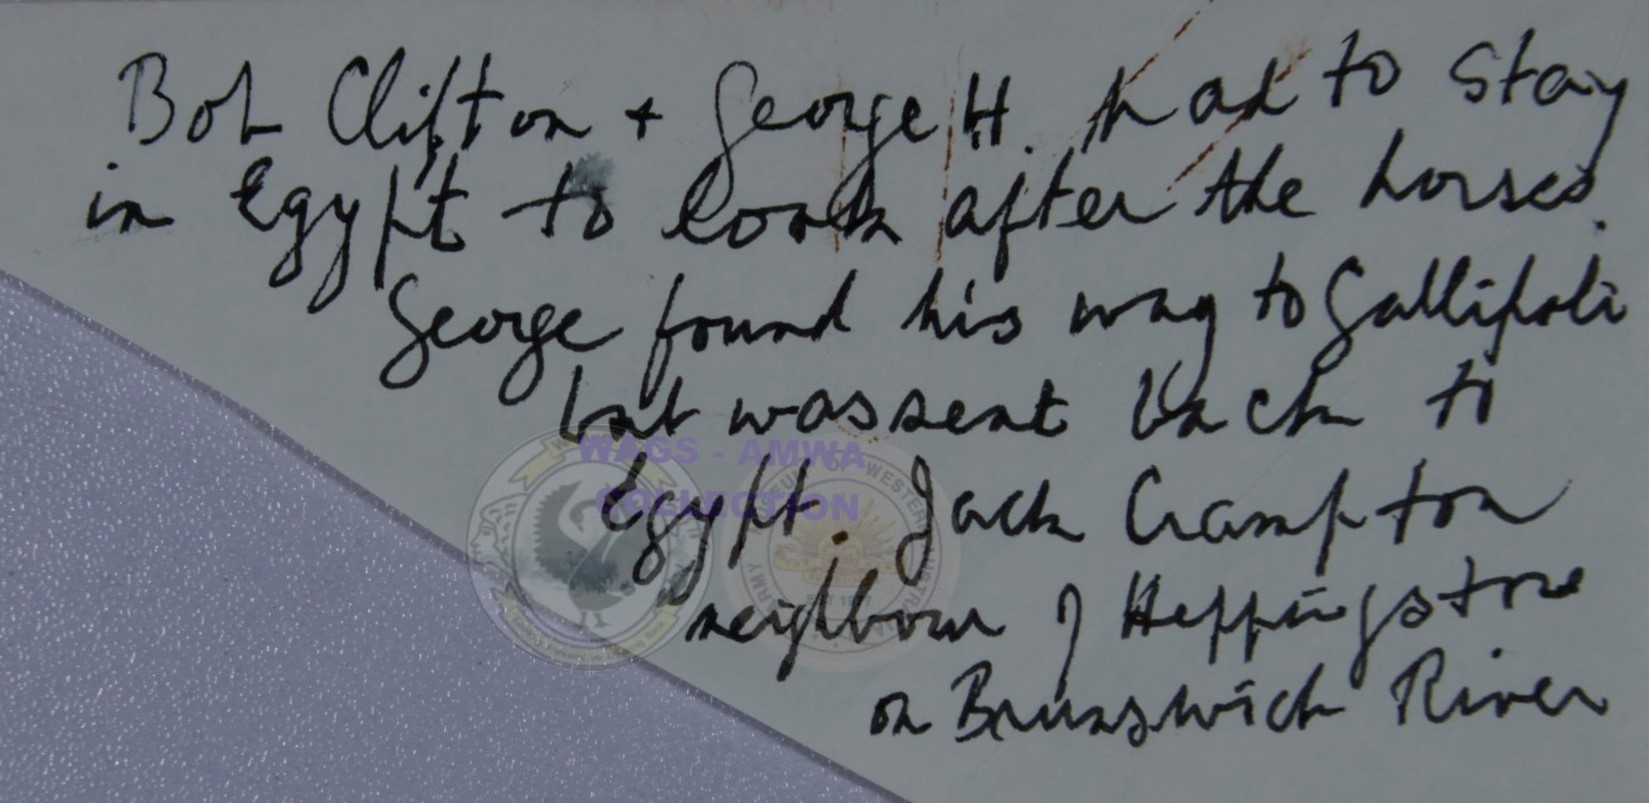 Bob Clifton + George H. had to stay
in Egypt to look after the horses.
George found his way to Gallipoli
but was sent back to
WAGS - AMWA
COLLECTION
Egypt. Jack Crampton
neighbour of Heppingstone
on Brunswick River